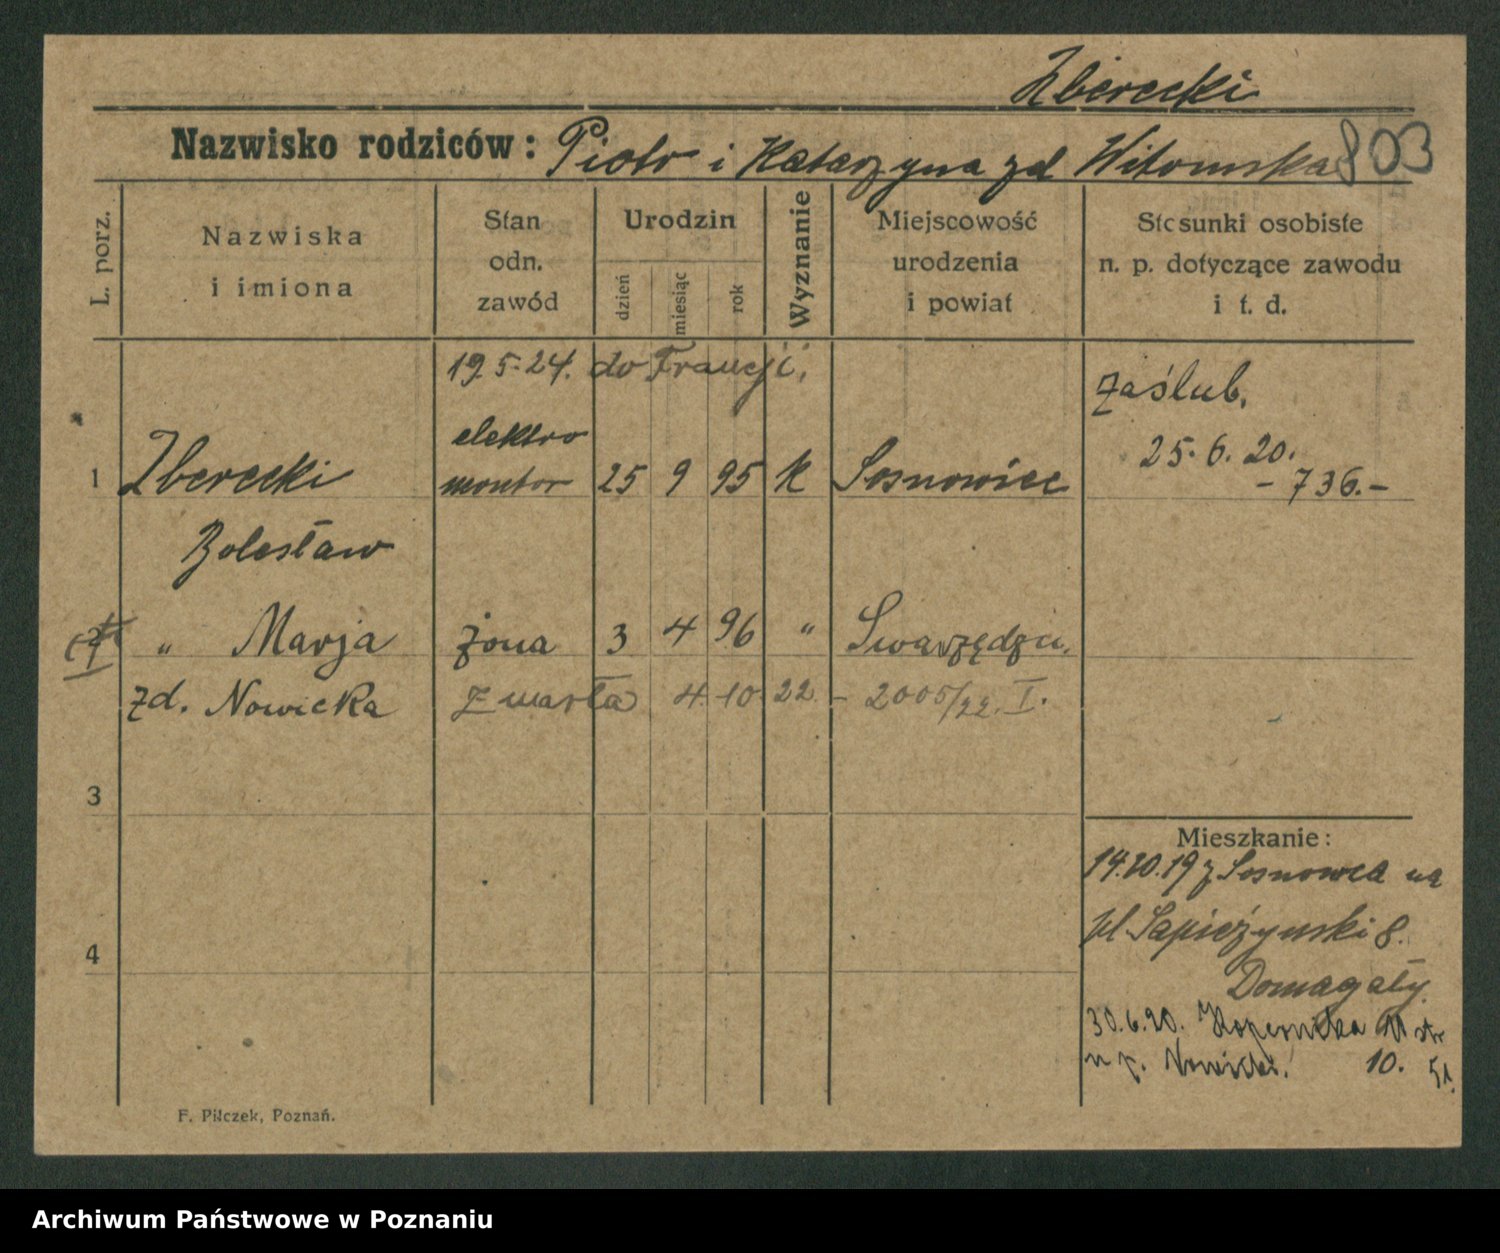 Zberecki
Nazwisko rodziców: Piotr i Katarzyna zd Witomska 803
L. porz.
Nazwiska
i imiona
Stan
odn.
zawód
Urodzin
dzień
miesiąc
rok
Wyznanie
Miejscowość
urodzenia
i powiat
Stosunki osobiste
n. p. dotyczące zawodu
i t. d.
19.5.24. do Francji,
1 Zberecki elektro
montor 25 9 95 k Sosnowiec
zaślub.
25.6.20.
- 736.-
Bolesław
" Marja żona 3 4 96 " Swarzędzu,
zd. Nowicka zmarła 4. 10. 22 - 2005/22. I.
3
4
Mieszkanie:
14.10.19 z Sosnowca na
pl. Sapieżynski 8.
Domagały.
30.6.20. Kopernika 11 str
u p. Nowicki. 10. 51.
F. Pilczek, Poznań.
Archiwum Państwowe w Poznaniu